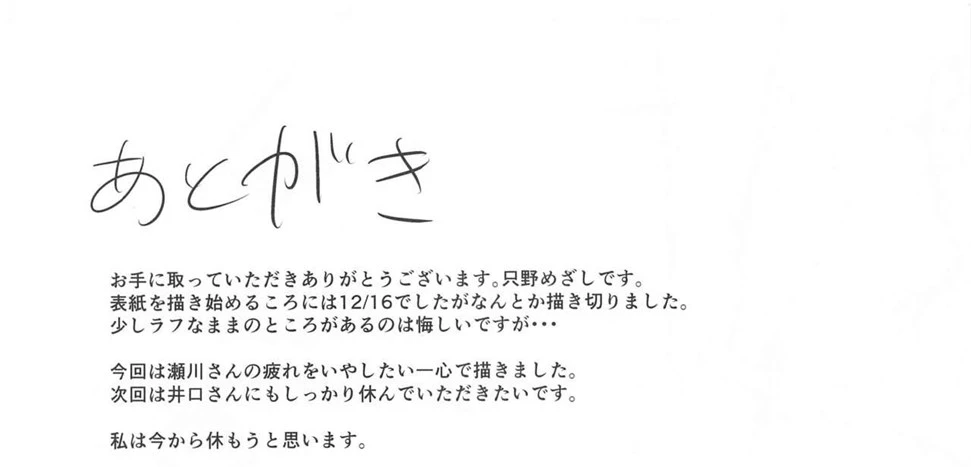 あとがき
お手に取っていただきありがとうございます。只野めざしです。
表紙を描き始めるころには12/16でしたがなんとか描き切りました。
少しラフなままのところがあるのは悔しいですが・・・
今回は瀬川さんの疲れをいやしたい一心で描きました。
次回は井口さんにもしっかり休んでいただきたいです。
私は今から休もうと思います。